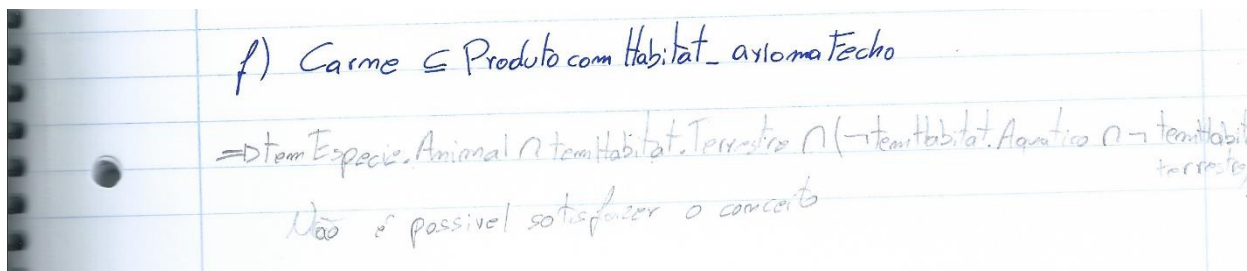 f) Carne ⊆ Produto com Habitat_axiomaFecho
=D temEspecie.Animal ∩ temHabitat.Terrestre ∩ (¬temHabitat.Aquatico ∩ ¬ temHabit
terrestre
Não é possivel satisfazer o conceito